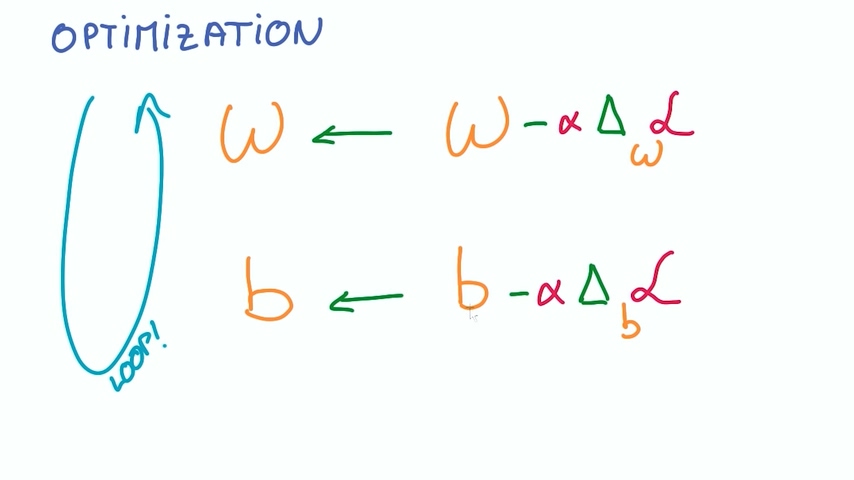 OPTIMIZATION
ω ← ω - α Δ_ω ℒ
b ← b - α Δ_b ℒ
LOOP!